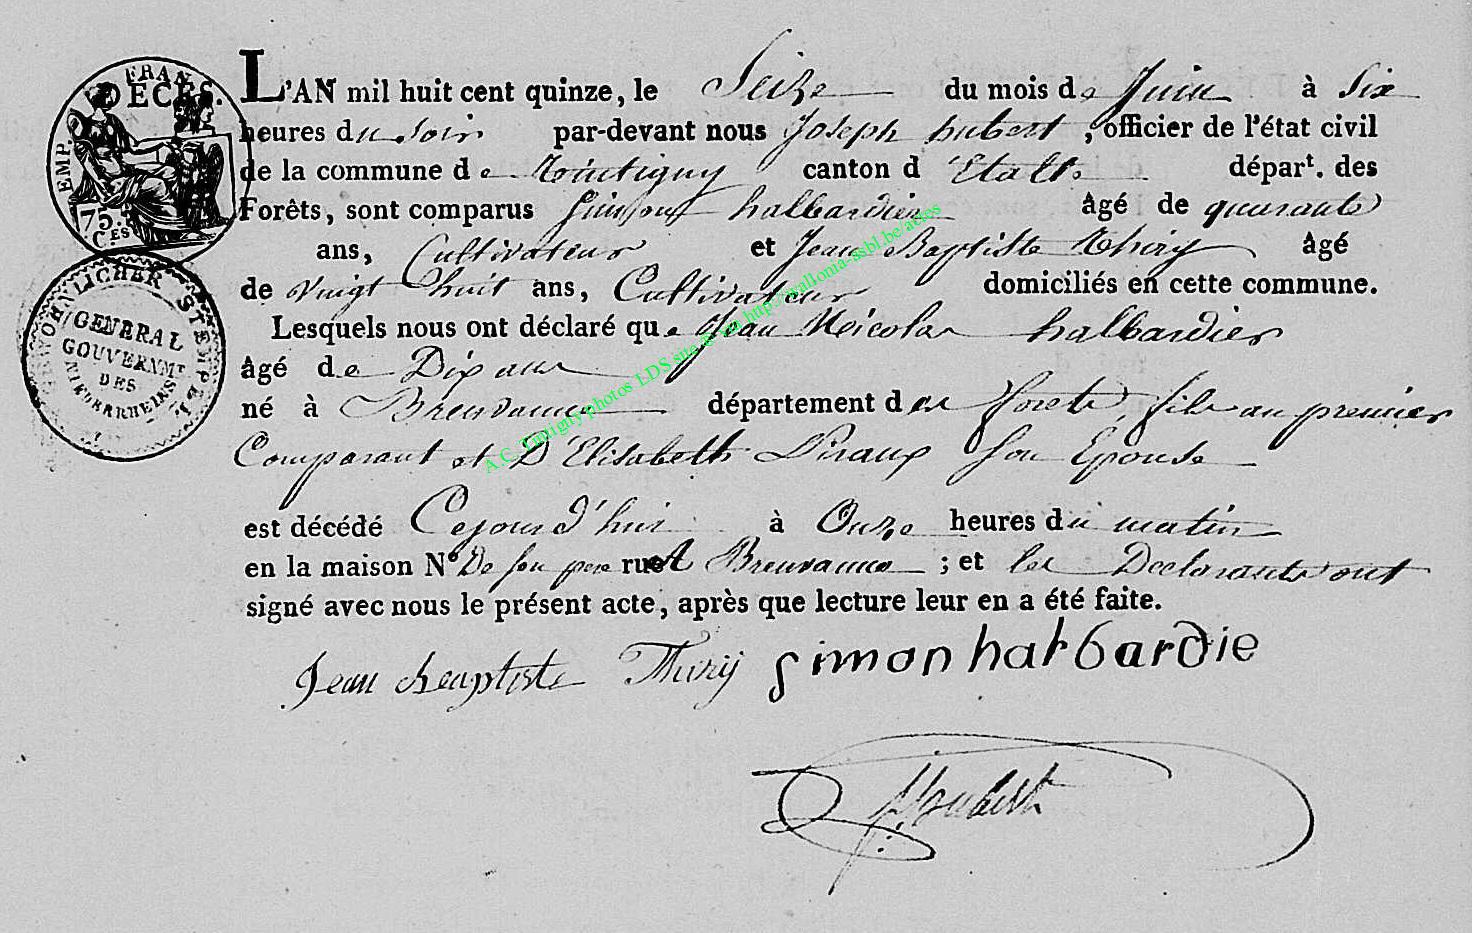 FRAN
DÉCÈS.
EMP.
75.
C.ES
GEWOEHNLICHER STEMPEL
GENERAL
GOUVERNM.T
DES
NIEDERRHEINS
L'AN mil huit cent quinze, le Seize du mois de Juin à Six
heures du soir par-devant nous Joseph hubert, officier de l'état civil
de la commune de canton d'Etalle départ. des
Forêts, sont comparus halbardier âgé de quarante
ans, Cultivateur et Jean Baptiste thiry âgé
de vingt huit ans, Cultivateur domiciliés en cette commune.
Lesquels nous ont déclaré que Jean Nicolas halbardier
âgé de Dix ans
né à Breuvanne département des forets, fils au premier
Comparant et D'Elisabeth Piraux Son Epouse
est décédé Cejourd'hui à Onze heures du matin
en la maison N° De son pere rue A Breuvanne ; et les Declarants ont
signé avec nous le présent acte, après que lecture leur en a été faite.
Jean Beaptiste Thiry simon halbardie
J houbert
A.C. Tintigny photos LDS sue @ via http://wallonia-asbl.be/actes